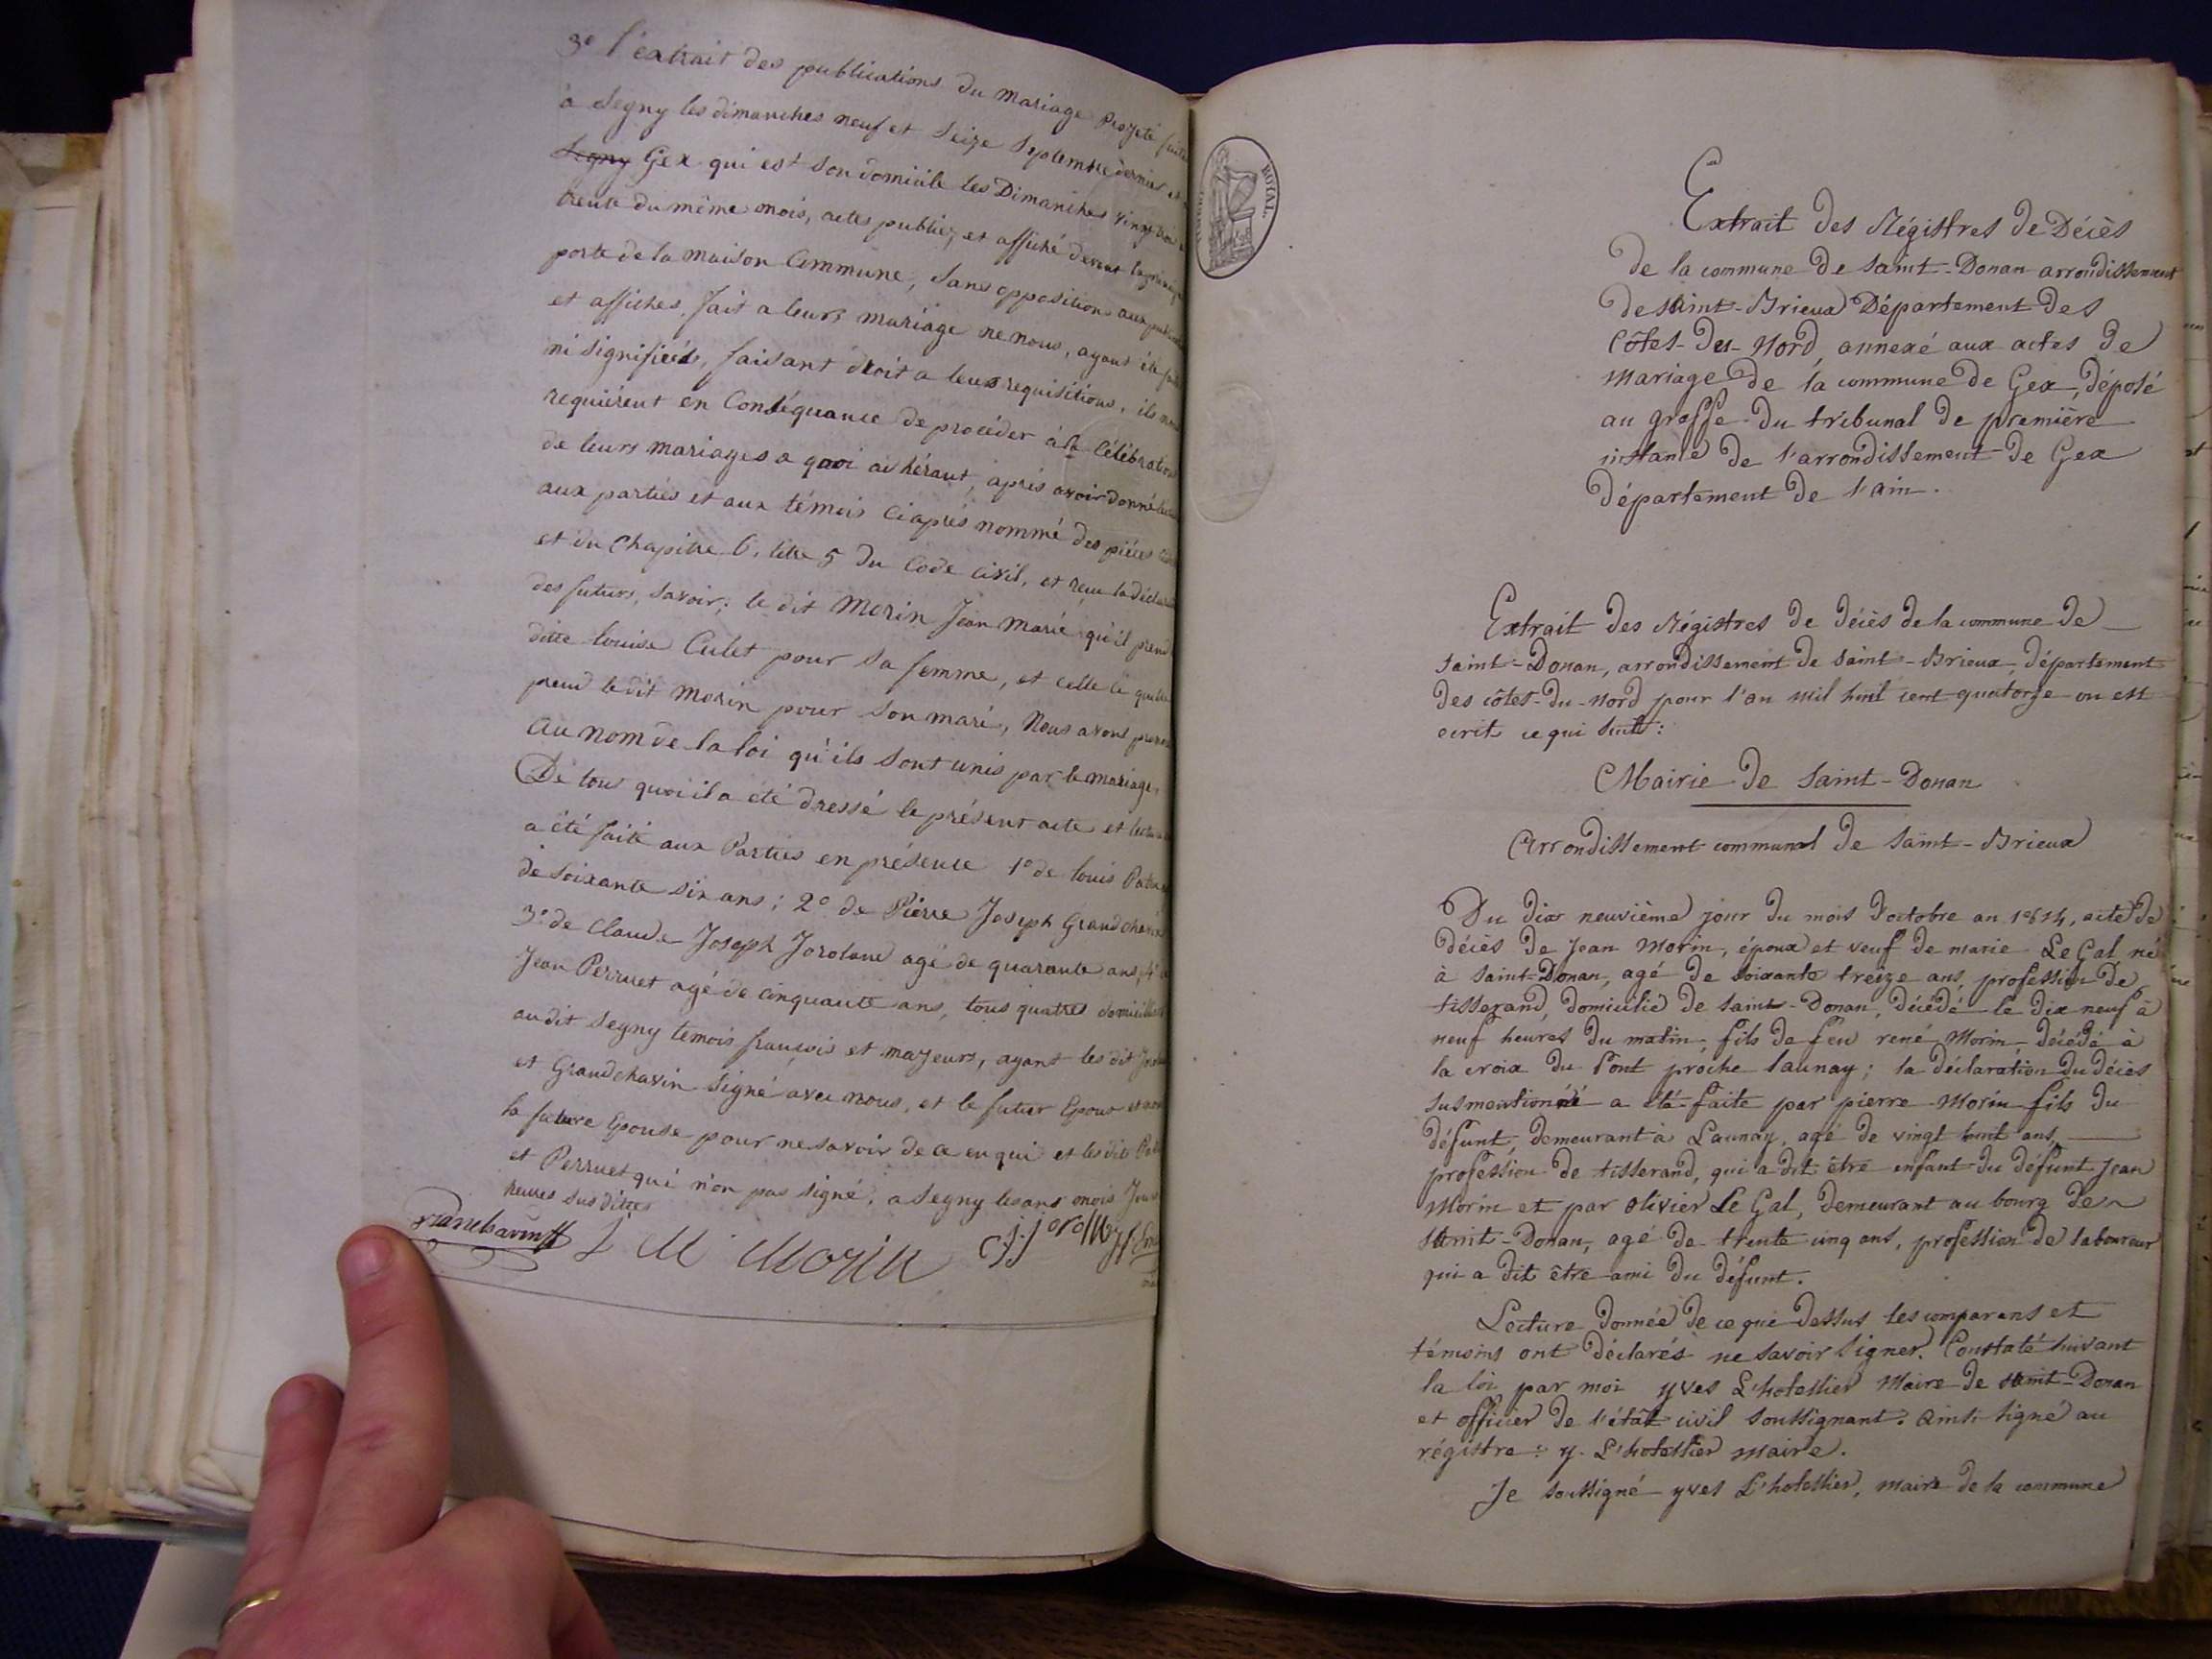 3º l'extrait des publications du mariage Projeté faites
à Segny les dimanches neuf et Seize Septembre dernier et
Segny Gex qui est son domicile les Dimanches vingt trois
trente du même mois, actes publiez et affiché devant
porte de la maison Commune, Sans opposition aux
et affiches, fait a leurs mariage ne nous, ayant été
ni signifieés, faisant droit a leurs requisitions, ils nous
requiérent en Conséquance de procéder à la Célébration
de leurs mariages a quoi adhérant, aprés avoir donné lecture
aux parties et aux témois ciaprés nommé des piéces
et du Chapitre 6, titre 5 du Code civil, et recu la déclaration
des futurs, Savoir; le dit Morin Jean Marie qu'il prend
ditte louise Culet pour sa femme, et celle ci quelle
prend le dit Morin pour son mari, Nous avons prononcé
au nom de la loi qu'ils sont unis par le mariage,
De tous quoi il a été dressé le présent acte et lecture
a été faite aux Parties en présence 1º de louis
de soixante six ans; 2º de Pierre Joseph Grandchavin
3º de Claude Joseph Jorolane agé de quarante ans, 4º
Jean Perruet agé de cinquante ans, tous quatres domiciliés
au dit Segny temois français et majeurs, ayant les dit
et Grandchavin Signé avec nous, et le futur Epoux et non
la future Epouse pour ne savoir de ce enqui et les dit
et Perruet qui n'on pas signé, a Segny les ans mois Jour
heures sus dittes
J M Morin
Extrait des Régistres de Décès
de la commune de saint-Donan arrondissement
de saint-Brieux Département des
Côtes-du-Nord, annexé aux actes de
mariage de la commune de Gex, déposé
au greffe du tribunal de première
instance de l'arrondissement de Gex
Département de l'ain.
Extrait des Régistres de décès de la commune de
saint-Donan, arrondissement de saint-Brieux, département
des côtes-du-Nord pour l'an mil huit cent quatorze ou est
ecrit ce qui suit:
Mairie de Saint-Donan
Arrondissement communal de saint-Brieux
Du dix neuvième jour du mois d'octobre an 1814, acte de
décès de Jean Morin, époux et veuf de marie Le Gal né
à saint-Donan, agé de soixante treize ans, profession de
tisserand, domicilié de saint-Donan, décédé le dix neuf à
neuf heures du matin, fils de feu rené Morin, décédé à
la croix du Pont proche launay; la déclaration du décès
susmentionné a été faite par pierre Morin fils du
défunt, demeurant à Launay, agé de vingt huit ans,
profession de tisserand, qui a dit être enfant du défunt Jean
Morin et par olivier Le Gal, demeurant au bourg de
saint-Donan, agé de trente cinq ans, profession de laboureur
qui a dit être ami du défunt.
Lecture donnée de ce que dessus les comparans et
témoins ont déclarés ne savoir signer. Constaté suivant
la loi par moi yves L'hotellier Maire de saint-Donan
et officier de l'état civil soussignant. ainsi signé au
régistre: y. L'hotellier maire.
Je soussigné yves L'hotellier, maire de la commune
ROYAL.